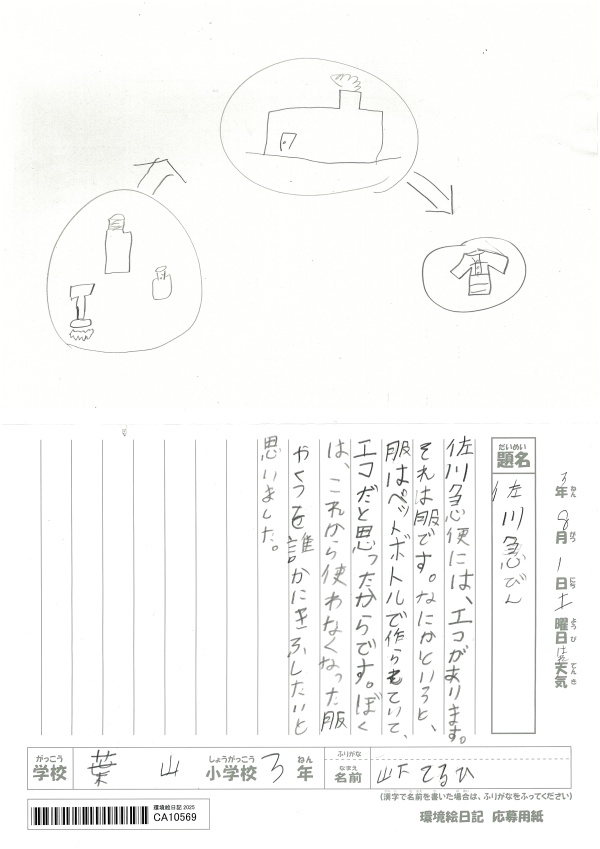 3年 8月 1日 土曜日 はれ 天気
ねん がつ にち ようび てんき
だいめい
題名
佐川急びん
佐川急便には、エコがあります。
それは服です。なにかというと、
服はペットボトルで作られていて、
エコだと思ったからです。ぼく
は、これから使わなくなった服
やくつを誰かにきふしたいと
思いました。
がっこう しょうがっこう ねん ふりがな
学校 葉山 小学校 3年 なまえ 名前 山下 てるひ
(漢字で名前を書いた場合は、ふりがなをふってください)
環境絵日記 2025
CA10569
環境絵日記 応募用紙